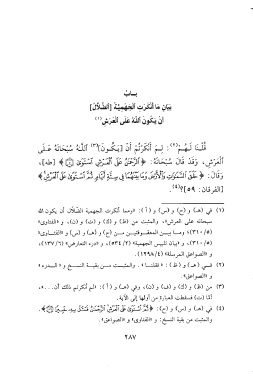 بـاب
بَيَانِ مَا أَنْكَرَتِ الجَهْمِيَّةُ [الضُّلَّالُ]
أَنْ يَكُونَ اللَّهُ عَلَى العَرْشِ (١)
قُلْنَا لَـهُـمْ(٢): لِـمَ أَنْكَرْتُمْ أَنْ [يَـكُـونَ](٣) اللَّـهُ سُبْحَانَهُ عَـلَى
العَرْشِ، وَقَدْ قَالَ سُبْحَانَهُ: ﴿الرَّحْمَٰنُ عَلَى الْعَرْشِ اسْتَوَىٰ ۝﴾ [طه]،
وَقَالَ: ﴿خَلَقَ السَّمَٰوَٰتِ وَالْأَرْضَ وَمَا بَيْنَهُمَا فِي سِتَّةِ أَيَّامٍ ثُمَّ اسْتَوَىٰ عَلَى الْعَرْشِ﴾
[الفرقان: ٥٩](٤).
(١) في (هـ) و(ج) و(س) و(أ): «وما أنكرت الجهمية الضُّلَّال أن يكون الله
سبحانه على العرش»، والمثبت من (ظ) و(ك) و(ت) و(ن)، و«الفتاوى»
(٣١٠/٥)، وما بـين المعقـوفتيـن مـن (ج) و(هـ) و(س) و«الفتـاوى»
(٣١٠/٥)، و«بيان تلبيس الجهمية» (٥٣٤/٢)، و«درء التعارض» (١٣٧/٦)،
و«الصواعق المرسلة» (١٢٩٨/٤).
(٢) فــي (هـ) و(ظ): «فقلنـا». والمثبـت مـن بقيـة النسـخ و«الـدرء»
و«الصواعق».
(٣) من (ظ) و(ك) و(ف) و(ن)، وفي (هـ) و(أ): «لم أنكرتم ذلك أن...»،
أمَّا (ت) فسقطت العبارة من أولها إلى الآية.
(٤) في (هـ) و(س) و(ج): ﴿ثُمَّ اسْتَوَىٰ عَلَى الْعَرْشِ الرَّحْمَٰنُ فَسْـَٔلْ بِهِ خَبِيرًا﴾،
والمثبت من بقية النسخ، و«الفتاوى» و«الصواعق».
٢٨٧